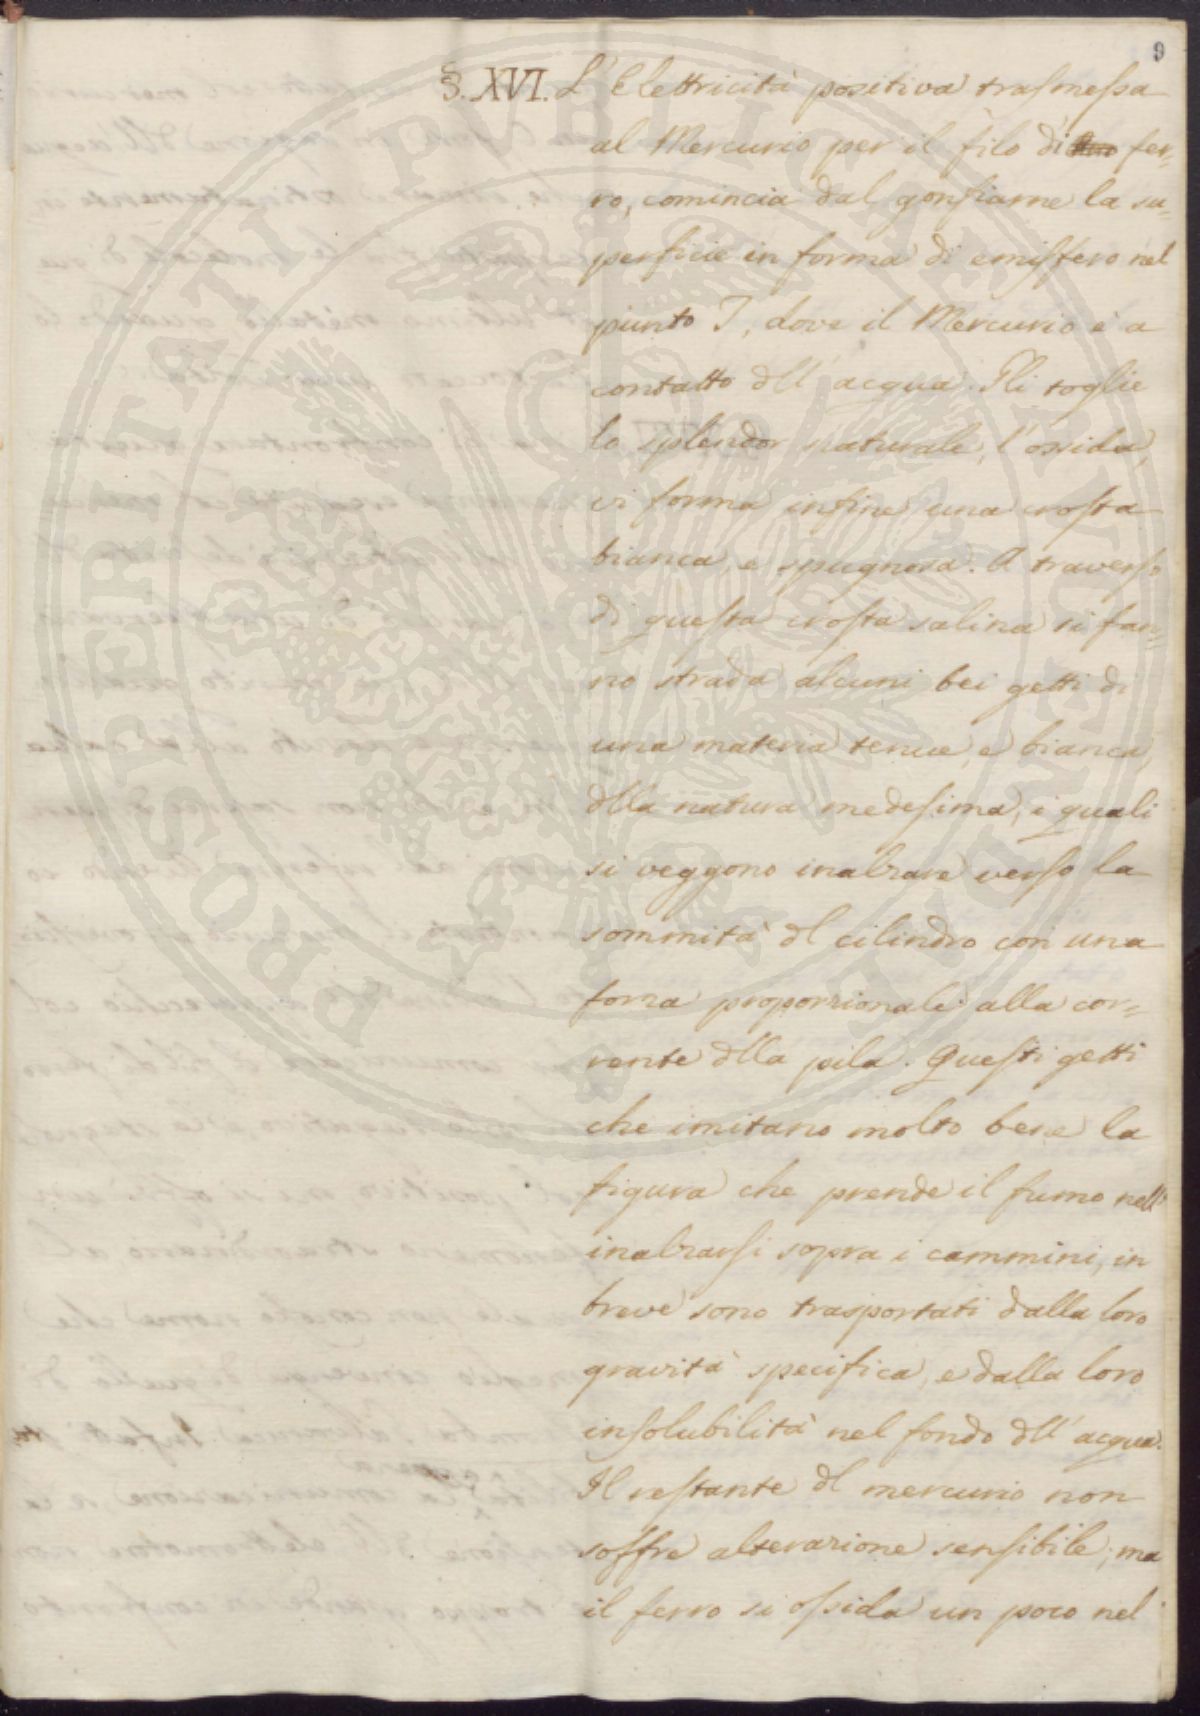 9
§. XVI. L'Elettricità positiva trasmessa
al Mercurio per il filo di fer=
ro, comincia dal gonfiarne la su=
perficie in forma di emisfero nel
punto I, dove il Mercurio è a
contatto dll' acqua. Gli toglie
lo splendor naturale, l'ossida,
vi forma infine una crosta
bianca, e spugnosa. A traverso
di questa crosta salina si fan=
no strada alcuni bei getti di
una materia tenue, e bianca,
dlla natura medesima, i quali
si veggono inalzare verso la
sommità dl cilindro con una
forza proporzionale alla cor=
rente dlla pila. Questi getti
che imitano molto bene la
figura che prende il fumo nell'
inalzarsi sopra i cammini, in
breve sono trasportati dalla loro
gravità specifica, e dalla loro
insolubilità nel fondo dll' acqua.
Il restante dl mercurio non
soffre alterazione sensibile; ma
il ferro si ossida un poco nel
PROSPERITATI PUBLICAE AUGENDAE